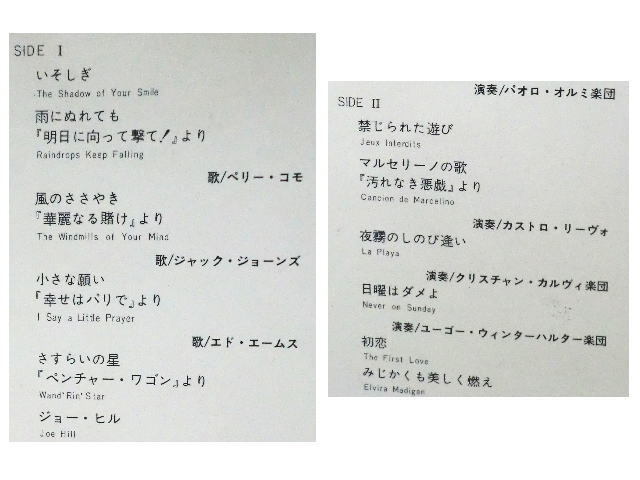 SIDE I
いそしぎ
The Shadow of Your Smile
雨にぬれても
『明日に向って撃て!』より
Raindrops Keep Falling
歌/ペリー・コモ
風のささやき
『華麗なる賭け』より
The Windmills of Your Mind
歌/ジャック・ジョーンズ
小さな願い
『幸せはパリで』より
I Say a Little Prayer
歌/エド・エームス
さすらいの星
『ペンチャー・ワゴン』より
Wand'Rin' Star
ジョー・ヒル
Joe Hill
演奏/パオロ・オルミ楽団
SIDE II
禁じられた遊び
Jeux Interdits
マルセリーノの歌
『汚れなき悪戯』より
Cancion de Marcelino
演奏/カストロ・リーヴォ
夜霧のしのび逢い
La Playa
演奏/クリスチャン・カルヴィ楽団
日曜はダメよ
Never on Sunday
演奏/ユーゴー・ウィンターハルター楽団
初恋
The First Love
みじかくも美しく燃え
Elvira Madigan